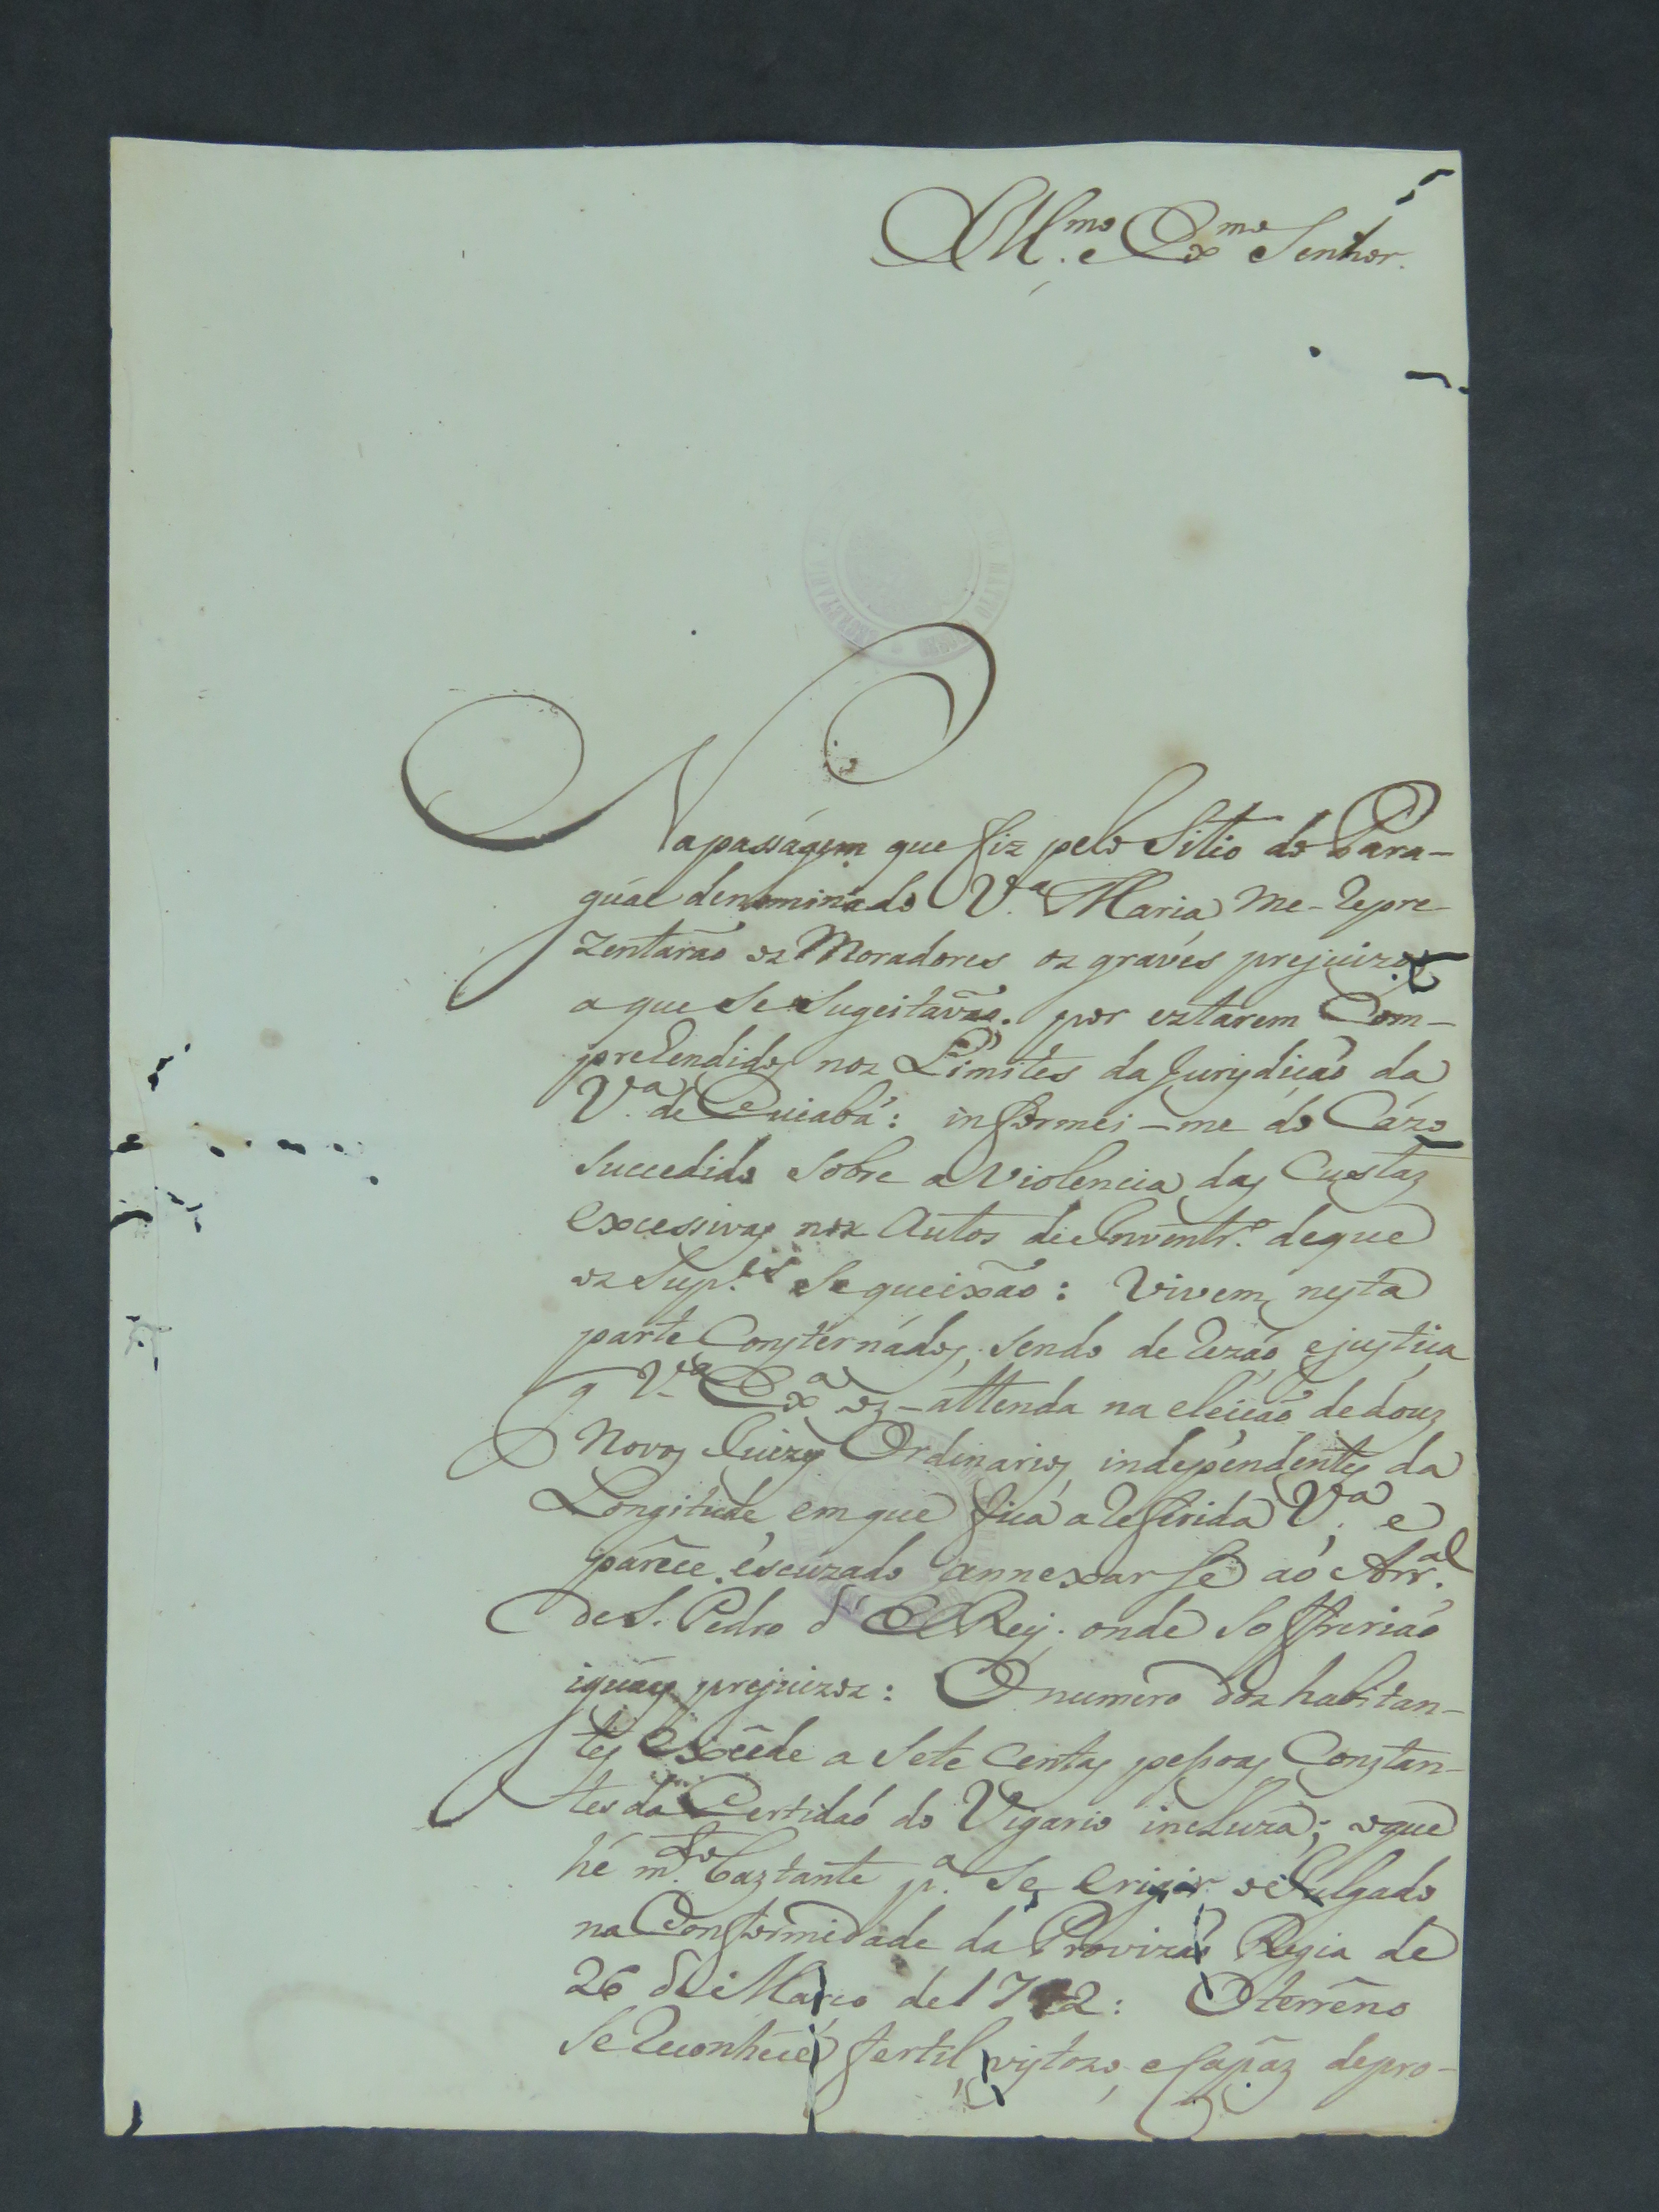 Ill.mo e Ex.mo Senhor.
Na passágem que fiz pelo Sitio do Para-
guái denominado V.a Maria, me-repre-
zentarão oz Moradores oz gravés prejuizos
a que se sugeitavão. por eztarem Com-
prehendidos noz Limites da Jurisdicáo da
V.a de Cuiabá: informei-me do Cázo
succedido sobre a Violencia das Custaz
excessivas noz Autos de Inventr.o de que
oz Sup.tes se queixão: Vivem nesta
parte Consternádos, sendo de rezáo, e justiça
q V.a Ex.a os-attenda na eleicáo de douz
Novos Juizes Ordinarios, indepéndentes da
Longitude, em que fica a referida V.a e
paréce escuzado annexar se ao Arr.al
de S. Pedro d' El Rey. onde soffririáo
iguáes prejuizoz: O numero doz habitan-
tes excéde a Sete Centas pessoas Conztan-
tes da Certidaó do Vigario incluza; o que
hé m.to baztante p.a se erigir o Julgado
na Conformidade da Provizáo Regia de
26 de Março de 17 2: O terrêno
se reconhece fertil, vistozo, e capáz de pro-